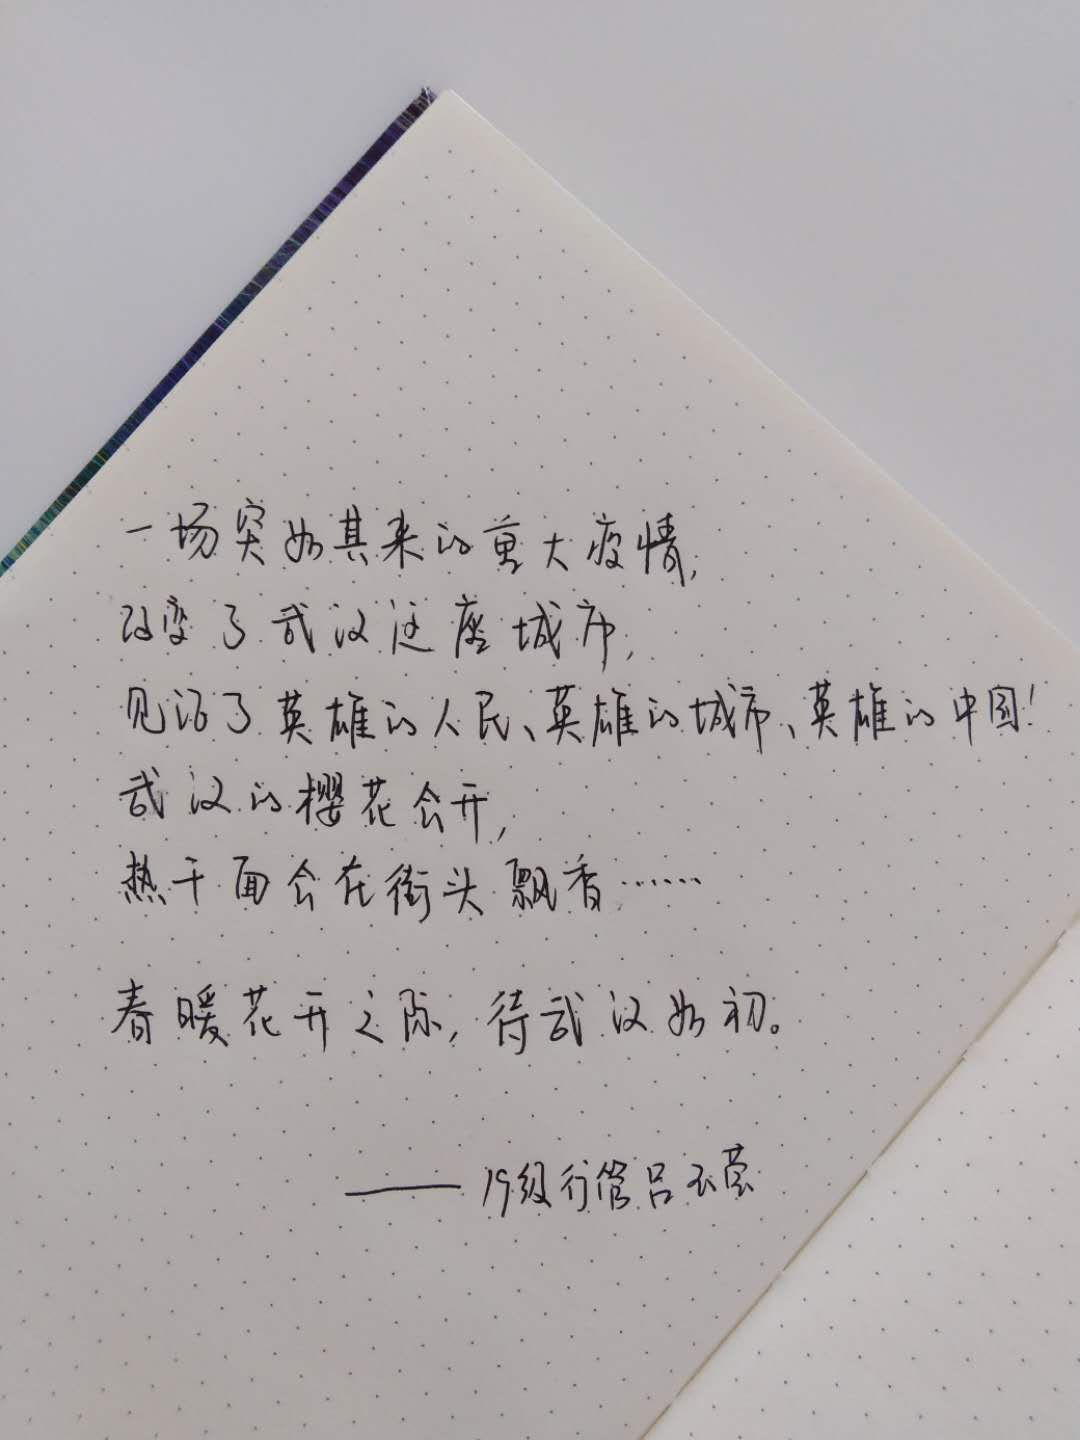 一场突如其来的重大疫情,
改变了武汉这座城市,
见证了英雄的人民、英雄的城市、英雄的中国!
武汉的樱花会开,
热干面会在街头飘香……
春暖花开之际,待武汉如初。
——19级行管吕玉莹